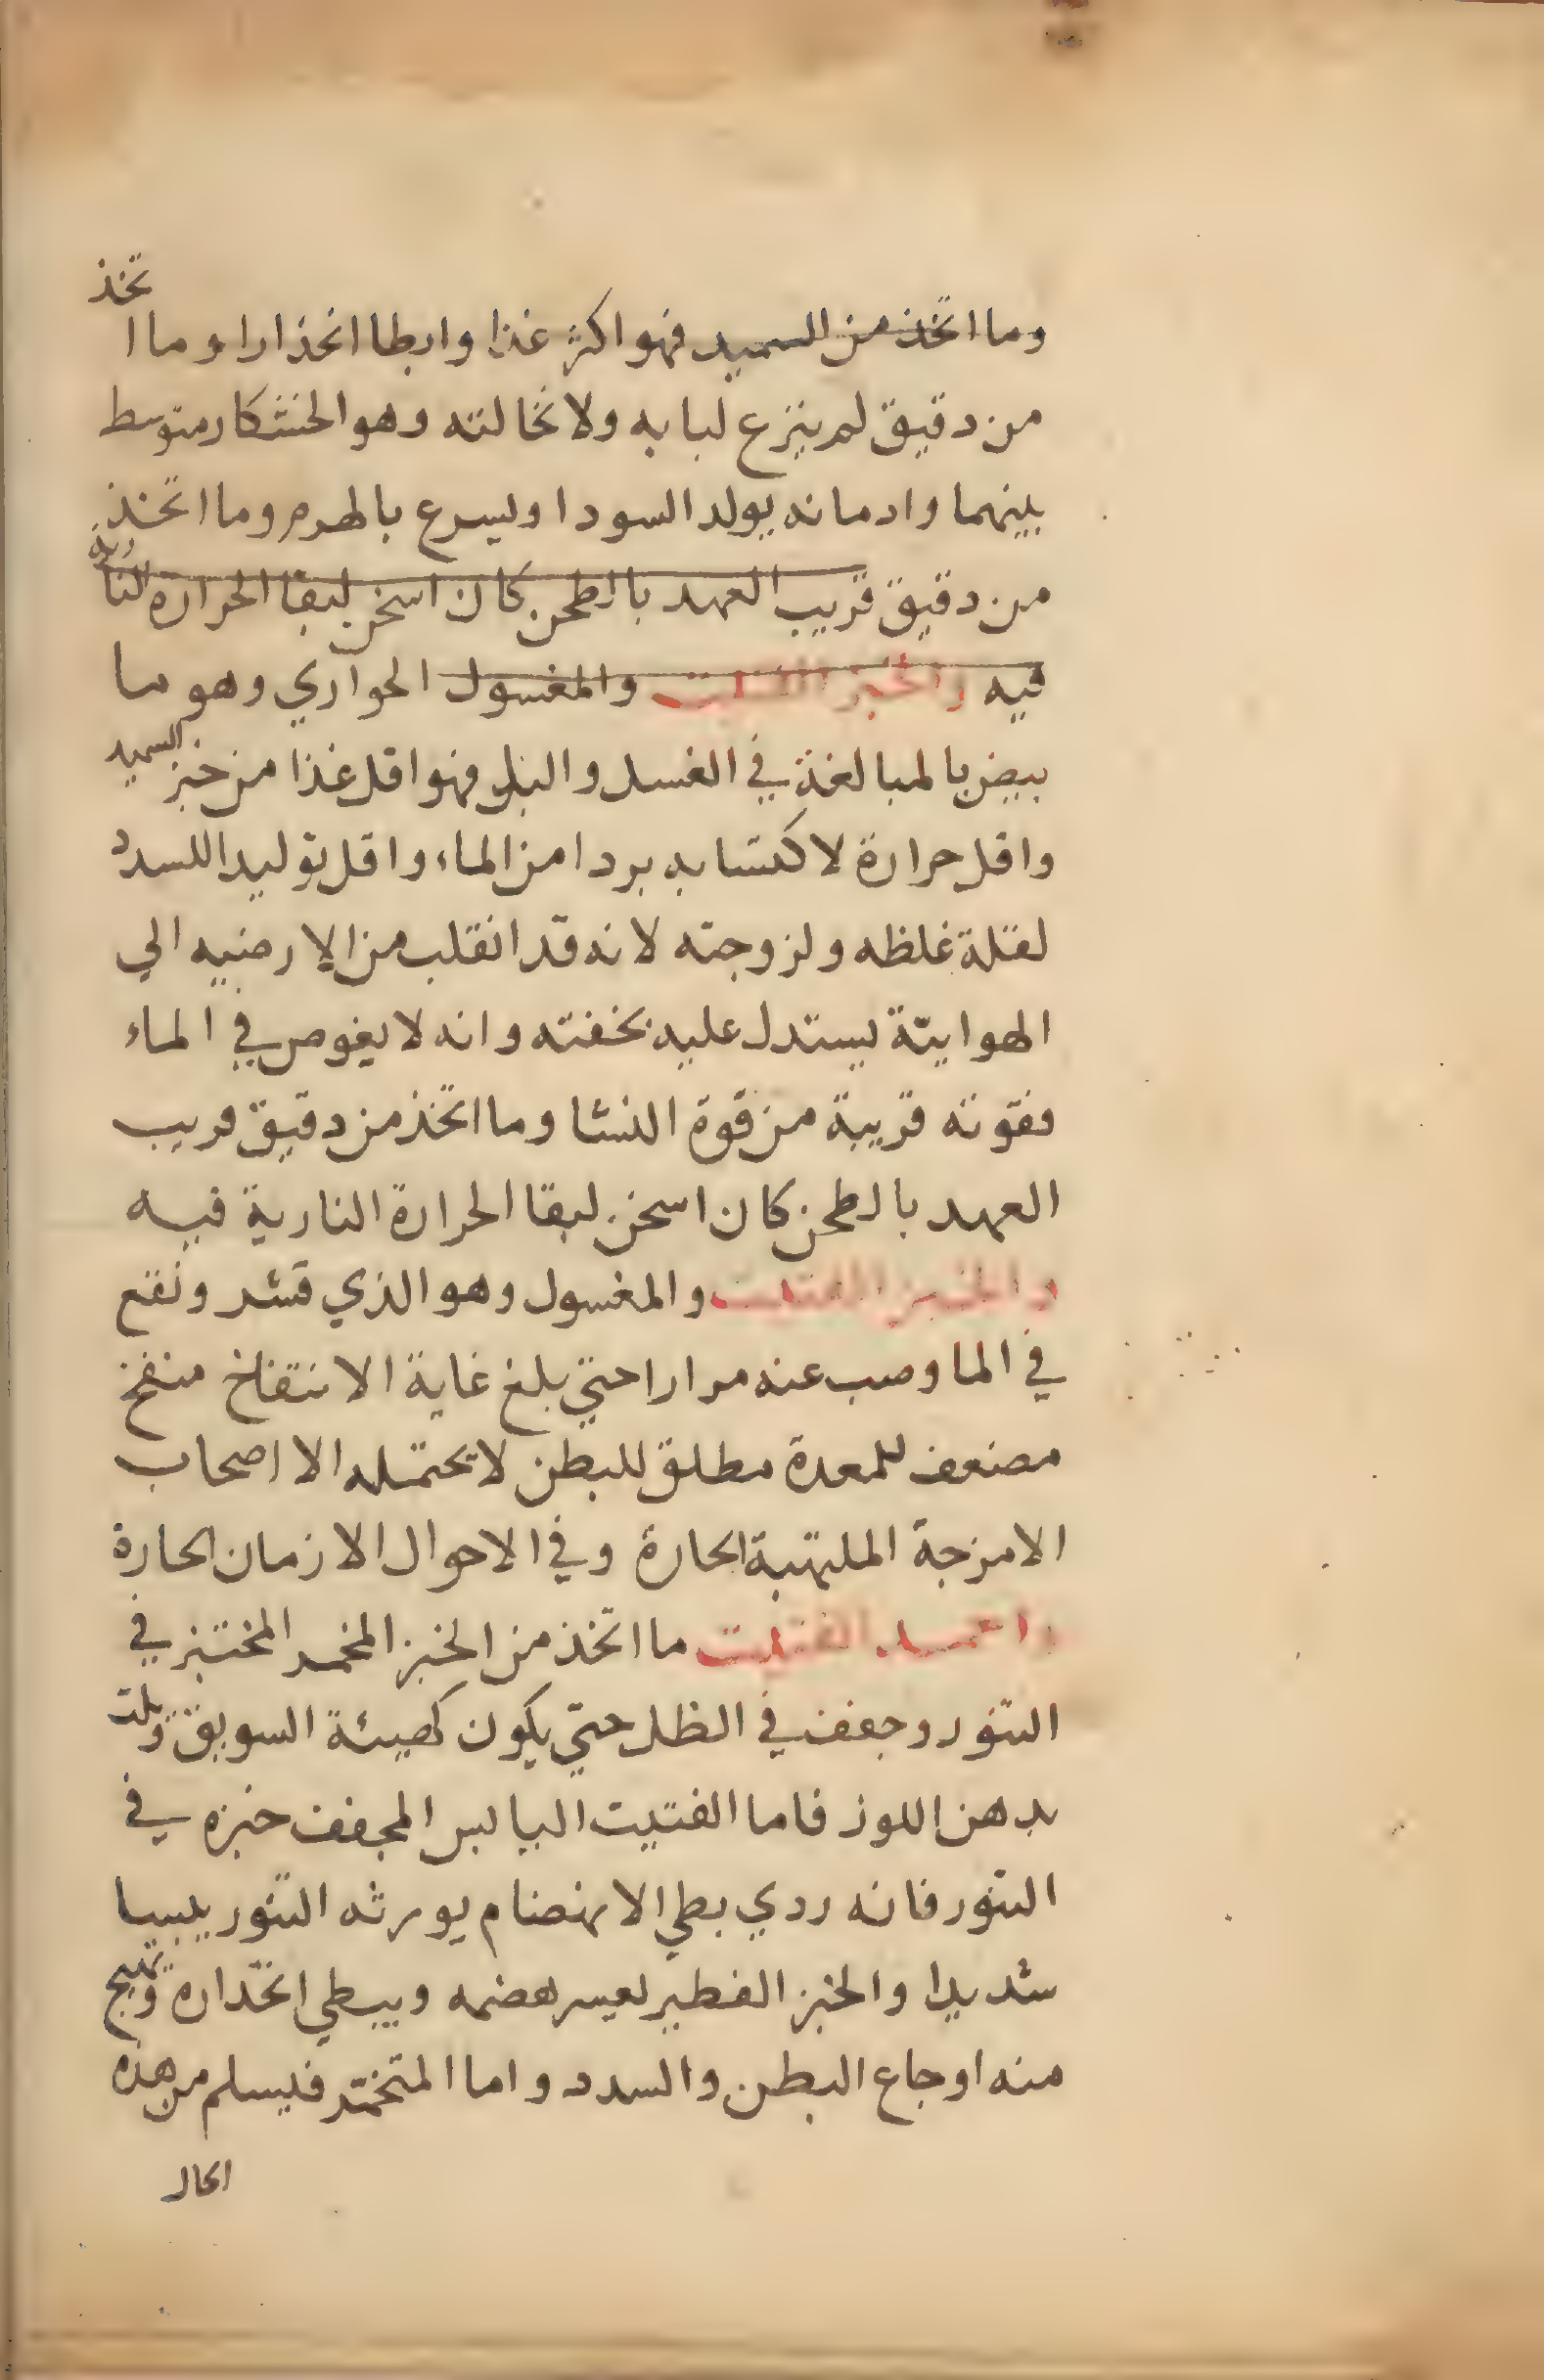 وما اتخذ من السميد فهو اكثر غذا وابطا انحذارا وما اتخذ
من دقيق لم ينزع لبابه ولا نخالته وهو الخشكار متوسط
بينهما وادمانه يولد السودا ويسرع بالهرم وما اتخذ
من دقيق قريب العهد بالطحن كان اسخن لبقا الحرارة النارية
فيه والخبز الفتيت والمغسول الحواري وهو ما
بيض بالمبالغة في الغسل والبل فهو اقل غذا من خبز السميد
واقل حرارة لاكتسابه بردا من الماء واقل توليدا للسدد
لقلة غلظه ولزوجته لانه قد انقلب من الارضيه الي
الهوايتة يستدل عليه بخفته وانه لا يغوص في الماء
فقوته قريبة من قوة النشا وما اتخذ من دقيق قريب
العهد بالطحن كان اسخن لبقا الحرارة النارية فيه
والخبز الفتيت والمغسول وهو الذي قشر ونقع
في الما وصب عنه مرارا حتي بلغ غاية الانتفاخ منفخ
مضعف للمعدة مطلق للبطن لا يحتمله الا اصحاب
الامزجة الملتهبة الحارة وفي الاحوال الازمان الحارة
واحمد الفتيت ما اتخذ من الخبز المخمر المختبز في
التنور وجفف في الظل حتي يكون كهيئة السويق ويلت
بدهن اللوز فاما الفتيت اليابس المجفف خبزه في
التنور فانه ردي بطي الانهضام يورثه التنور يبسا
شديدا والخبز الفطير يعسر هضمه ويبطي انحداره وتهيج
منه اوجاع البطن والسدد واما المتخمر فيسلم من هذه
الحال